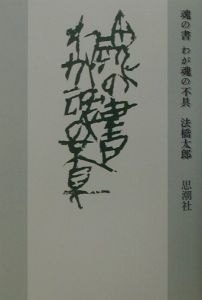 魂の書 わが魂の不具 法橋太郎 思潮社
魂の書
わが魂の不具